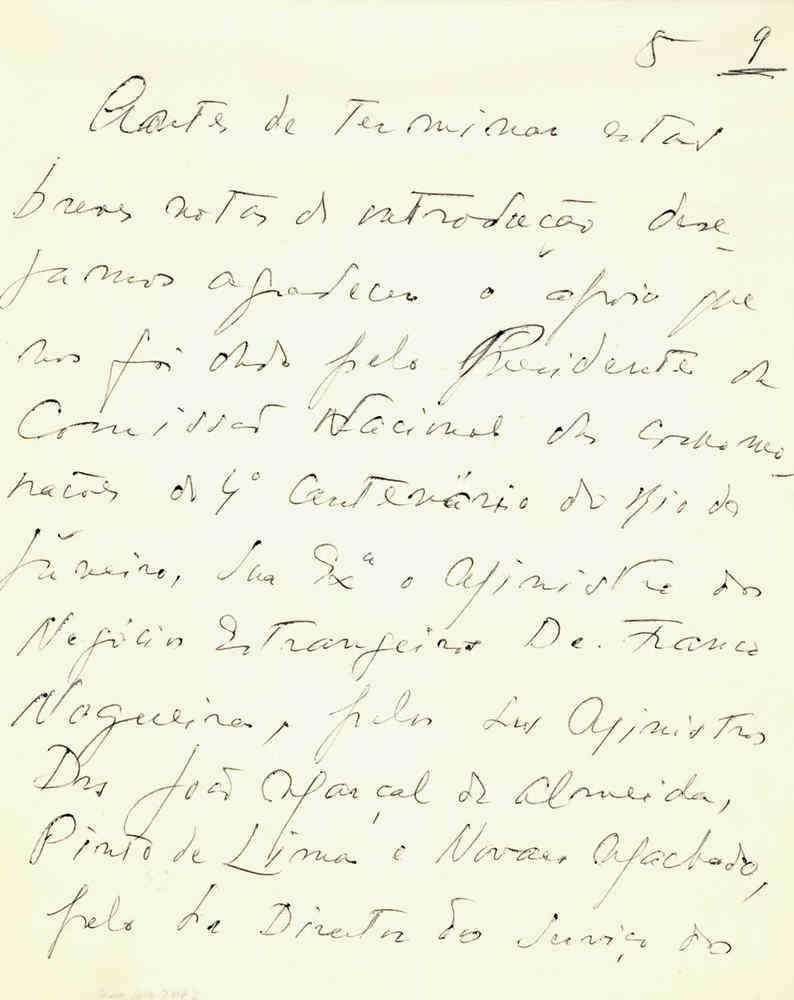 5 9
Antes de terminar estas
breves notas de introdução dese-
jamos agradecer o apoio que
nos foi dado pelo Presidente da
Comissão Nacional das comemo-
rações do 4º Centenário do Rio de
Janeiro, Sua Exª o Ministro dos
Negócios Estrangeiros Dr. Franco
Nogueira, pelos Srs Ministros
Drs João Marçal de Almeida,
Pinto de Lima e Novaes Machado,
pelo Sr Director do Serviço dos